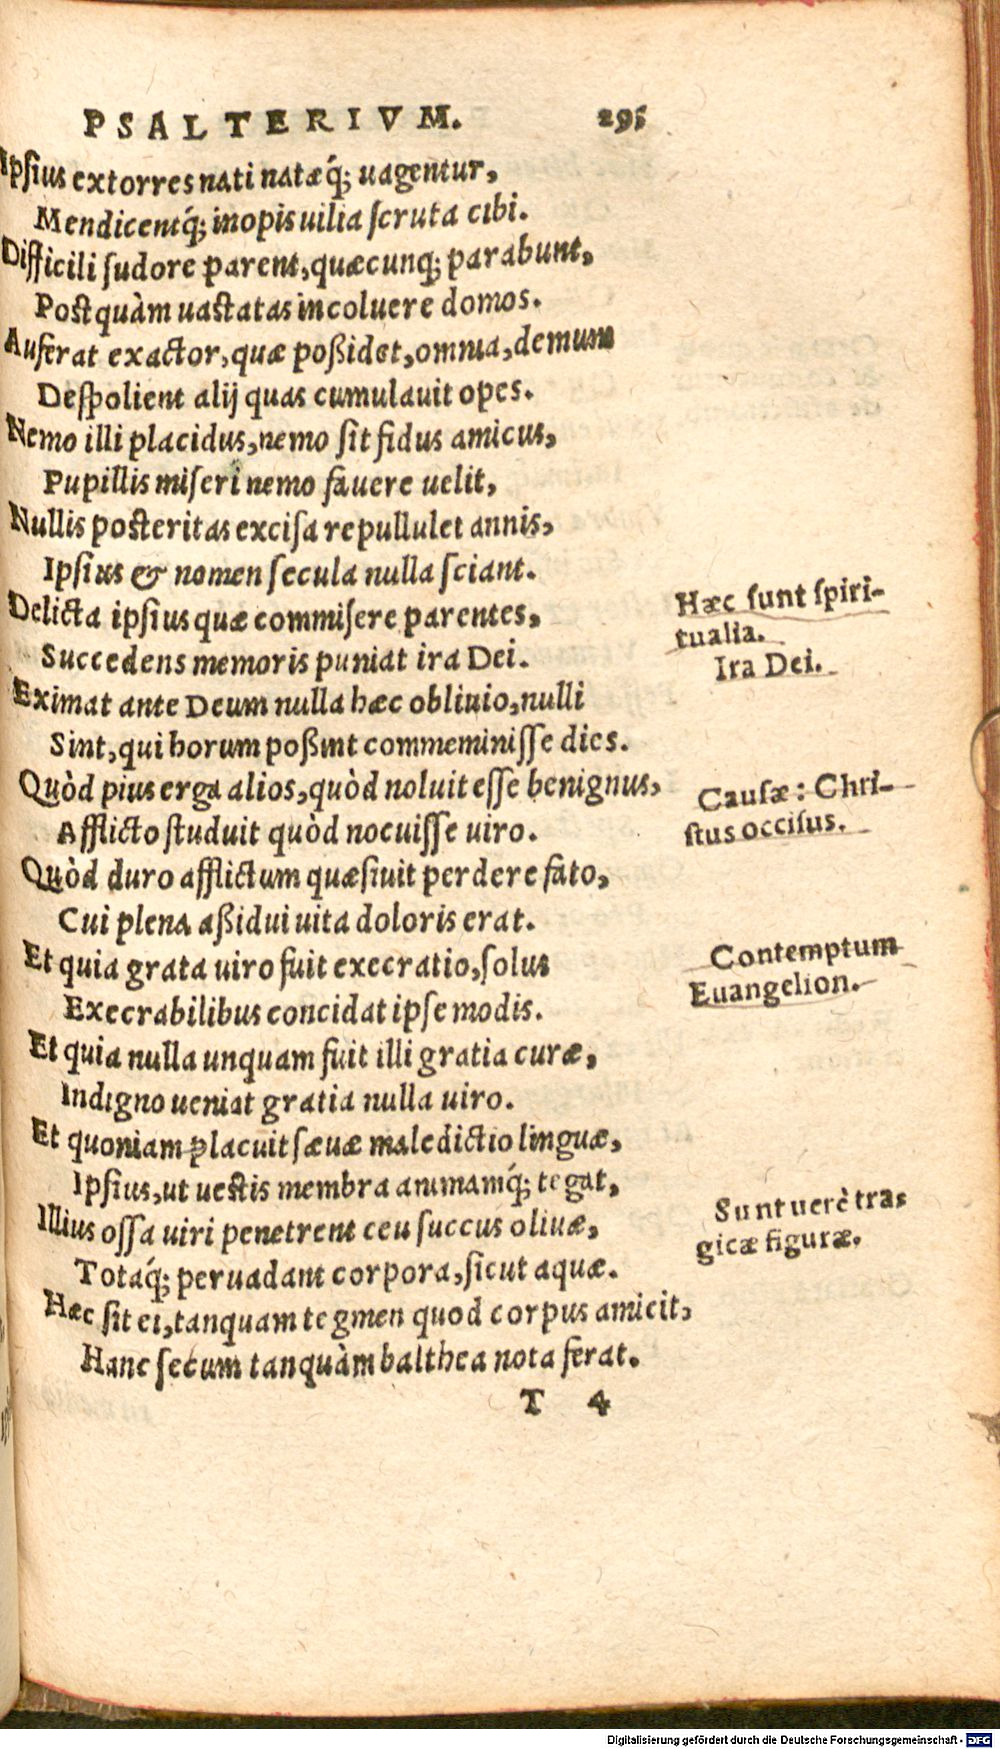 PSALTERIVM. 295
Ipsius extorres nati natæq́; uagentur,
Mendicentq́; inopis uilia scruta cibi.
Difficili sudore parent, quæcunq; parabunt,
Postquàm uastatas incoluere domos.
Auferat exactor, quæ poßidet, omnia, demum
Despolient alij quas cumulauit opes.
Nemo illi placidus, nemo sit fidus amicus,
Pupillis miseri nemo fauere uelit,
Nullis posteritas excisa repullulet annis,
Ipsius & nomen secula nulla sciant.
Delicta ipsius quæ commisere parentes,
Succedens memoris puniat ira Dei.
Eximat ante Deum nulla hæc obliuio, nulli
Sint, qui horum poßint commeminisse dies.
Quòd pius erga alios, quòd noluit esse benignus,
Afflicto studuit quòd nocuisse uiro.
Quòd duro afflictum quæsiuit perdere fato,
Cui plena aßidui uita doloris erat.
Et quia grata uiro fuit execratio, solus
Execrabilibus concidat ipse modis.
Et quia nulla unquam fuit illi gratia curæ,
Indigno ueniat gratia nulla uiro.
Et quoniam placuit sæuæ maledictio linguæ,
Ipsius, ut uestis membra animamq́; tegat,
Illius ossa uiri penetrent ceu succus oliuæ,
Totaq́; peruadant corpora, sicut aquæ.
Hæc sit ei, tanquam tegmen quod corpus amicit,
Hanc secum tanquàm balthea nota ferat.
T 4
Hæc sunt spiri-
tualia.
Ira Dei.
Causæ: Chri-
stus occisus.
Contemptum
Euangelion.
Sunt uerè tra-
gicæ figuræ.
Digitalisierung gefördert durch die Deutsche Forschungsgemeinschaft - DFG